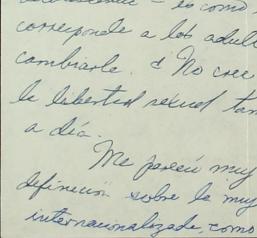 es como
corresponde a los adul
cambiarle. ¿ No cree
la libertad sexual tan
a día.
Me pareció muy
definición sobre la muj
internacionalizada, como